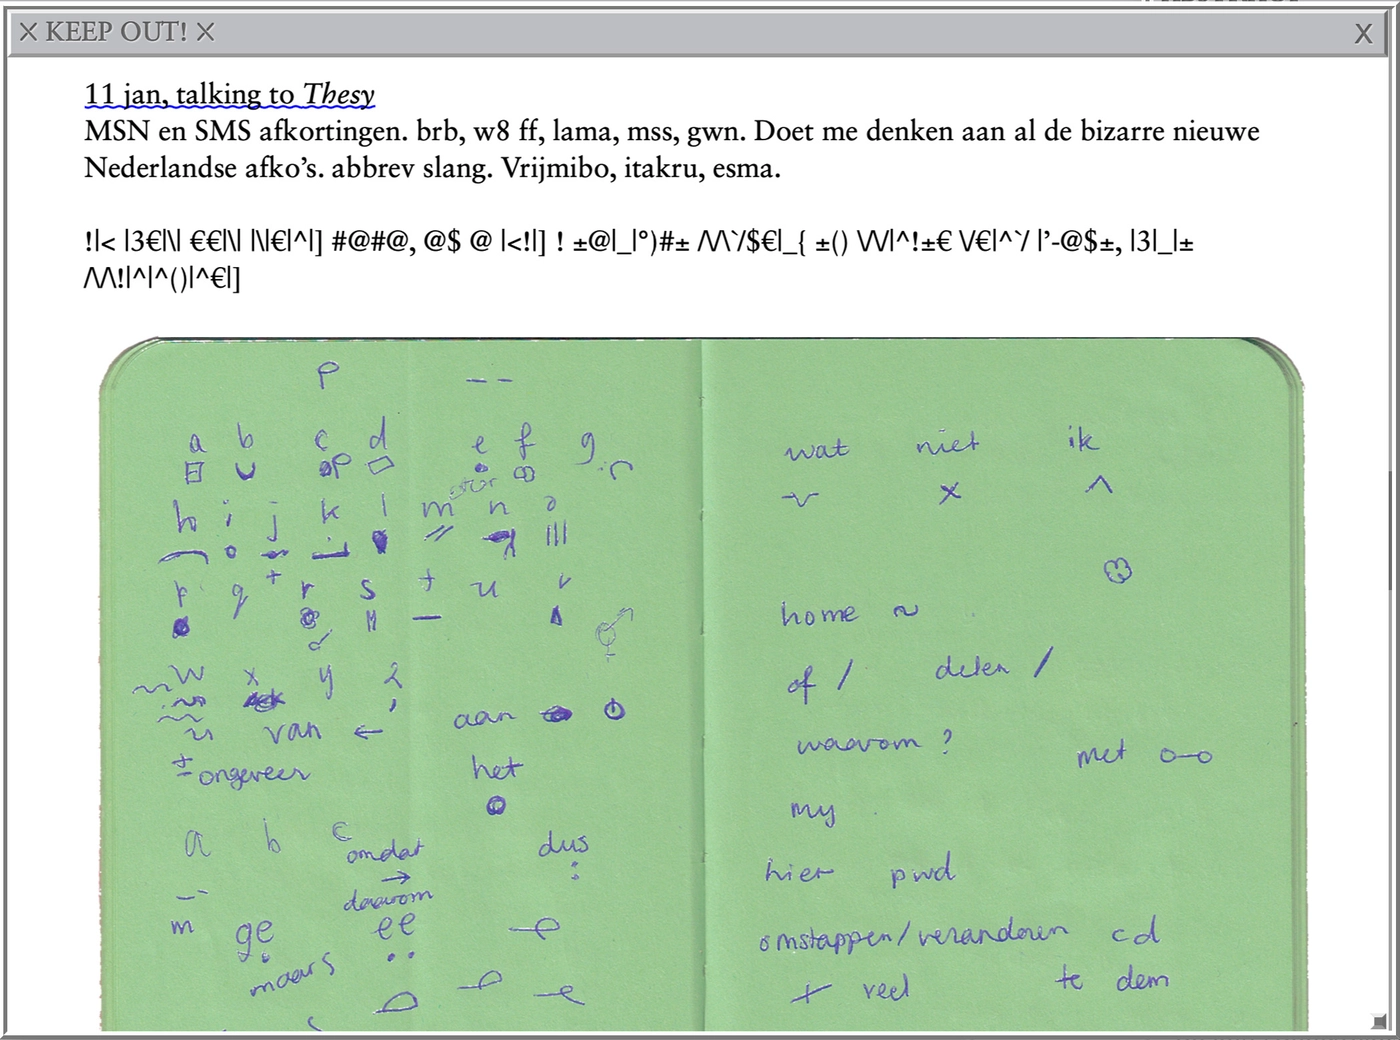 X KEEP OUT! X X
11 jan, talking to Thesy
MSN en SMS afkortingen. brb, w8 ff, lama, mss, gwn. Doet me denken aan al de bizarre nieuwe
Nederlandse afko's. abbrev slang. Vrijmibo, itakru, esma.
!|< |3€|\| €€|\| |\|€|^|] #@#@, @$ @ |<!|] ! ±@|_|°)#± /\/\`/$€|_{ ±() \/\/|^!±€ \/€|^`/ |'-@$±, |3|_|±
/\/\!|^|^()|^€|]
p --
a b c d e f g
h i j k l m n o
q + r s t u v
w x y z
van ← aan
± ongeveer het
a b c omdat dus
→ :
daarom
m ge ee
maar s
wat niet ik
x ^
home ~
of / delen /
waarom ? met o-o
my
hier pwd
omstappen/veranderen cd
+ veel te dem